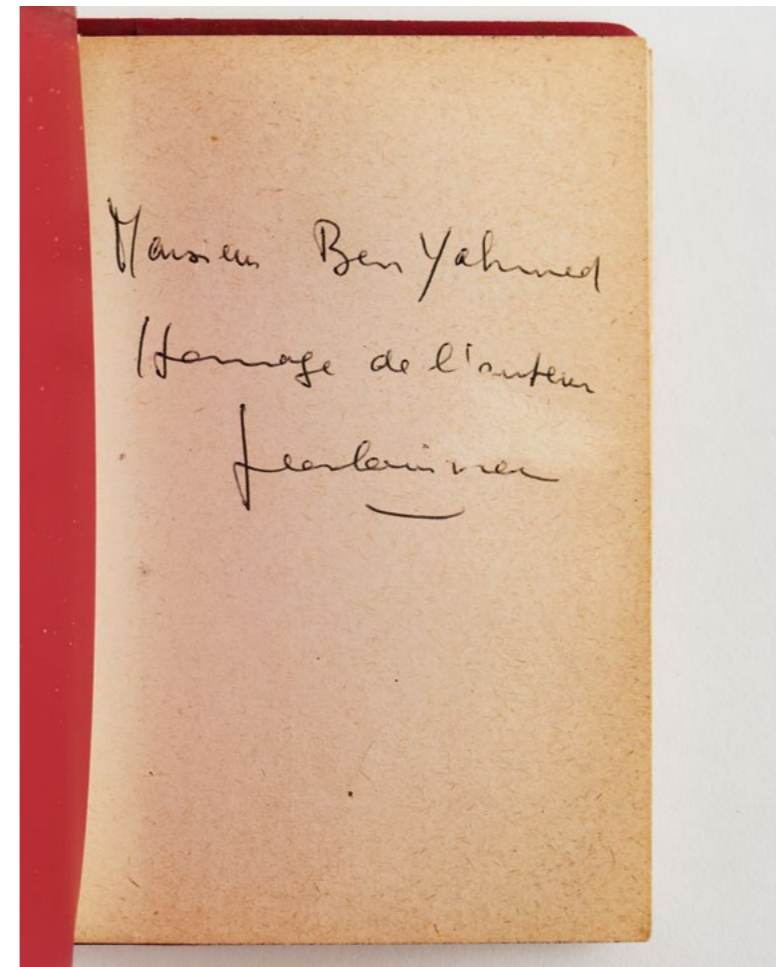 Monsieur Ben Yahmed
Hommage de l'auteur